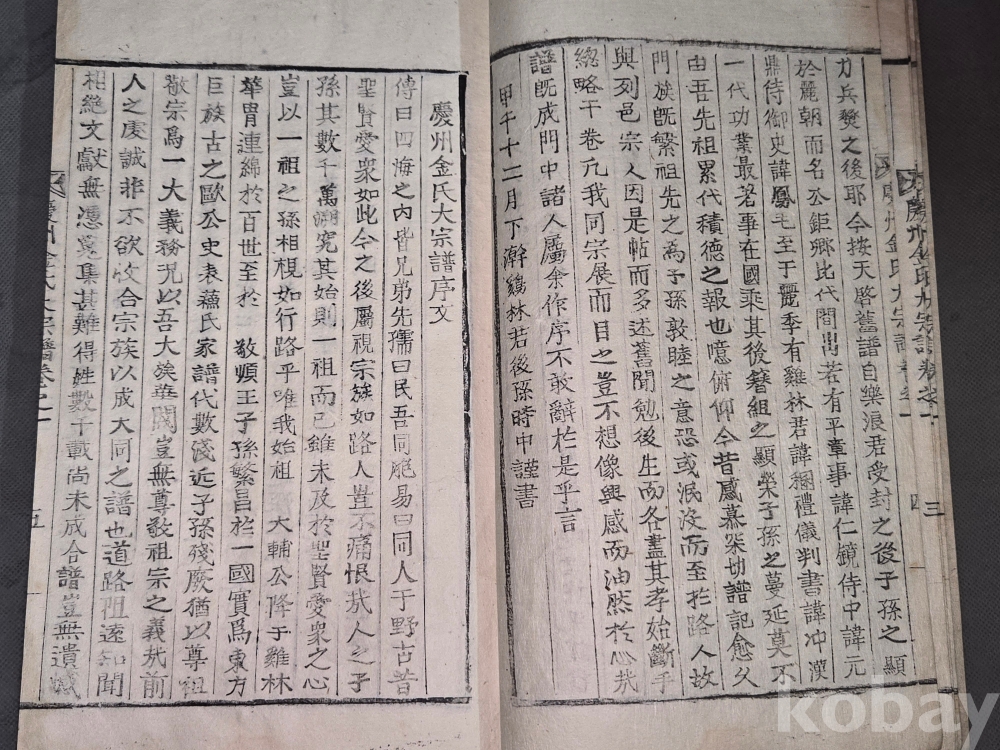 力兵燹之後耶今按天啓舊譜自樂浪君受封之後子孫之顯
於麗朝而名公鉅卿比代間出若有平章事諱仁鏡侍中諱元
鼎侍御史諱鳳毛至于麗季有雞林君諱稛禮儀判書諱冲漢
一代功業最著事在國乘其後簪組之顯榮子孫之蔓延莫不
由吾先祖累代積德之報也噫俯仰今昔感慕深切譜記愈久
門族旣繁祖先之爲子孫敦睦之意恐或泯沒而至於路人故
與列邑宗人因是帖而多述舊聞勉後生而各盡其孝始斷手
總略干卷凡我同宗展而目之豈不想像興感而油然於心哉
譜旣成門中諸人屬余作序不敢辭於是乎言
甲午十二月下澣鷄林君後孫時中謹書
慶州金氏大宗譜序文
傳曰四海之內皆兄弟先儒曰民吾同胞易曰同人于野古昔
聖賢愛衆如此今之後屬視宗族如路人豈不痛恨哉人之子
孫其數千萬溯究其始則一祖而已雖未及於聖賢愛衆之心
豈以一祖之孫相視如行路乎唯我始祖 大輔公降于雞林
華胄連綿於百世至於 敬順王子孫繁昌於一國實爲東方
巨族古之歐公史表蘓氏家譜代數淺近子孫殘廢猶以尊祖
敬宗爲一大義務况以吾大族華閥豈無尊敬祖宗之義哉前
人之虔誠非不欲收合宗族以成大同之譜也道路阻遠知聞
相絶文獻無憑蒐集甚難得姓數千載尚未成合譜豈無遺憾
慶州金氏大宗譜卷之一
三
四
五
kobay